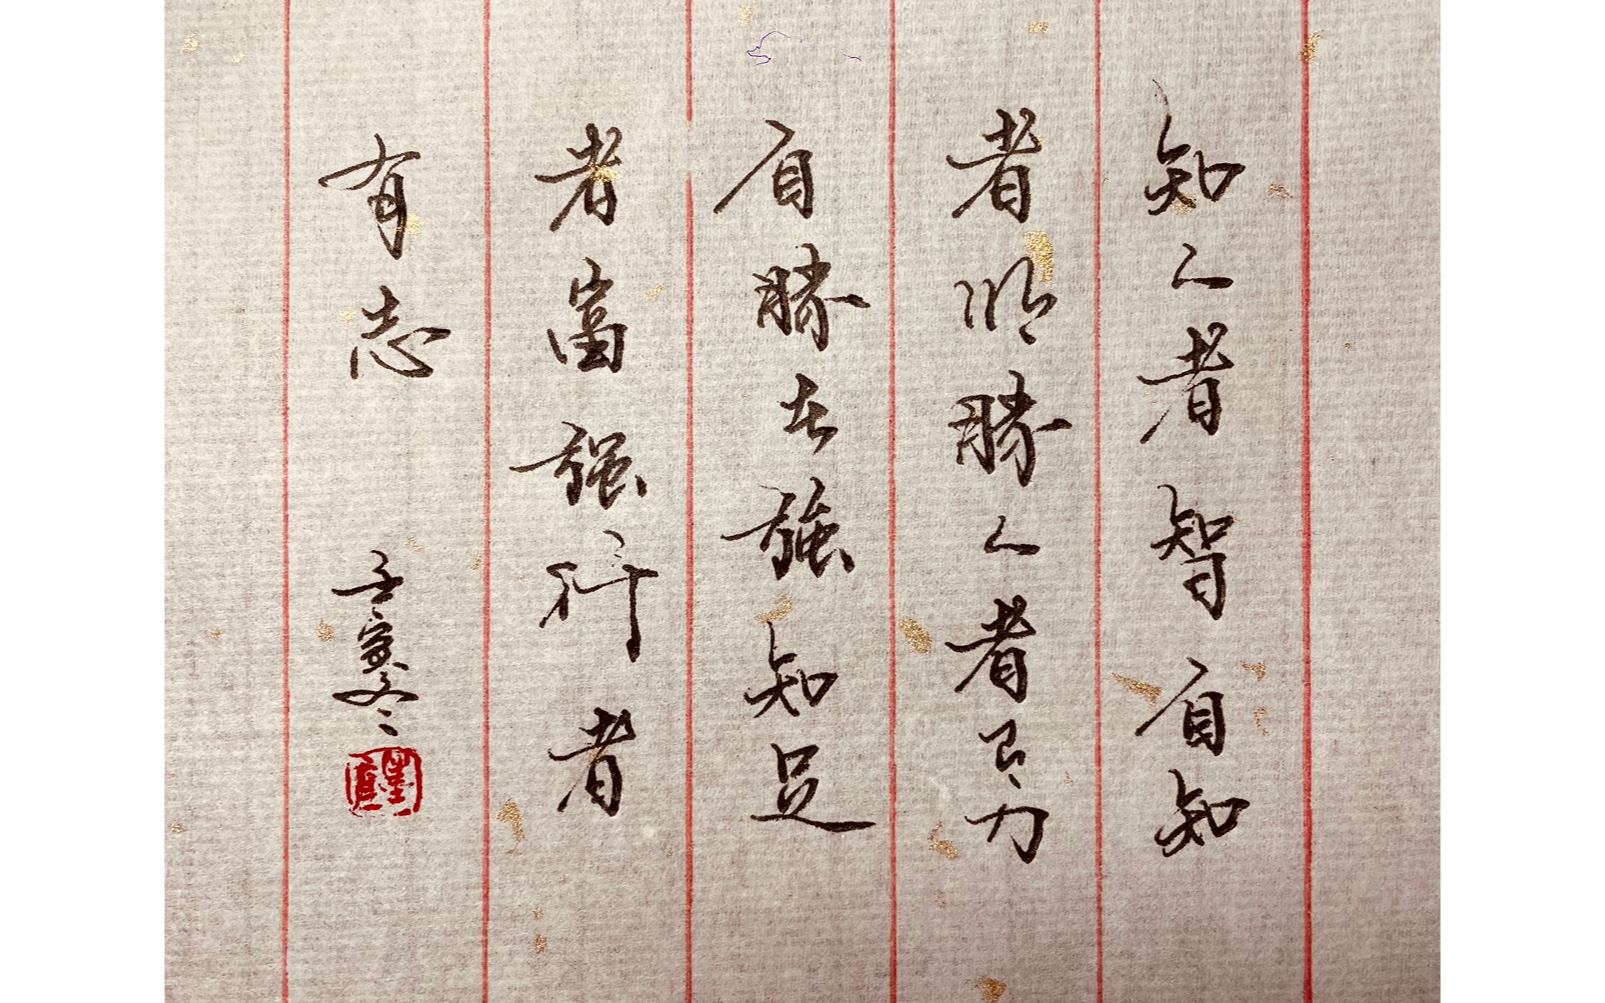 知人者智自知
者明勝人者力
自勝者強知足
者富强行者
有志
壬寅冬